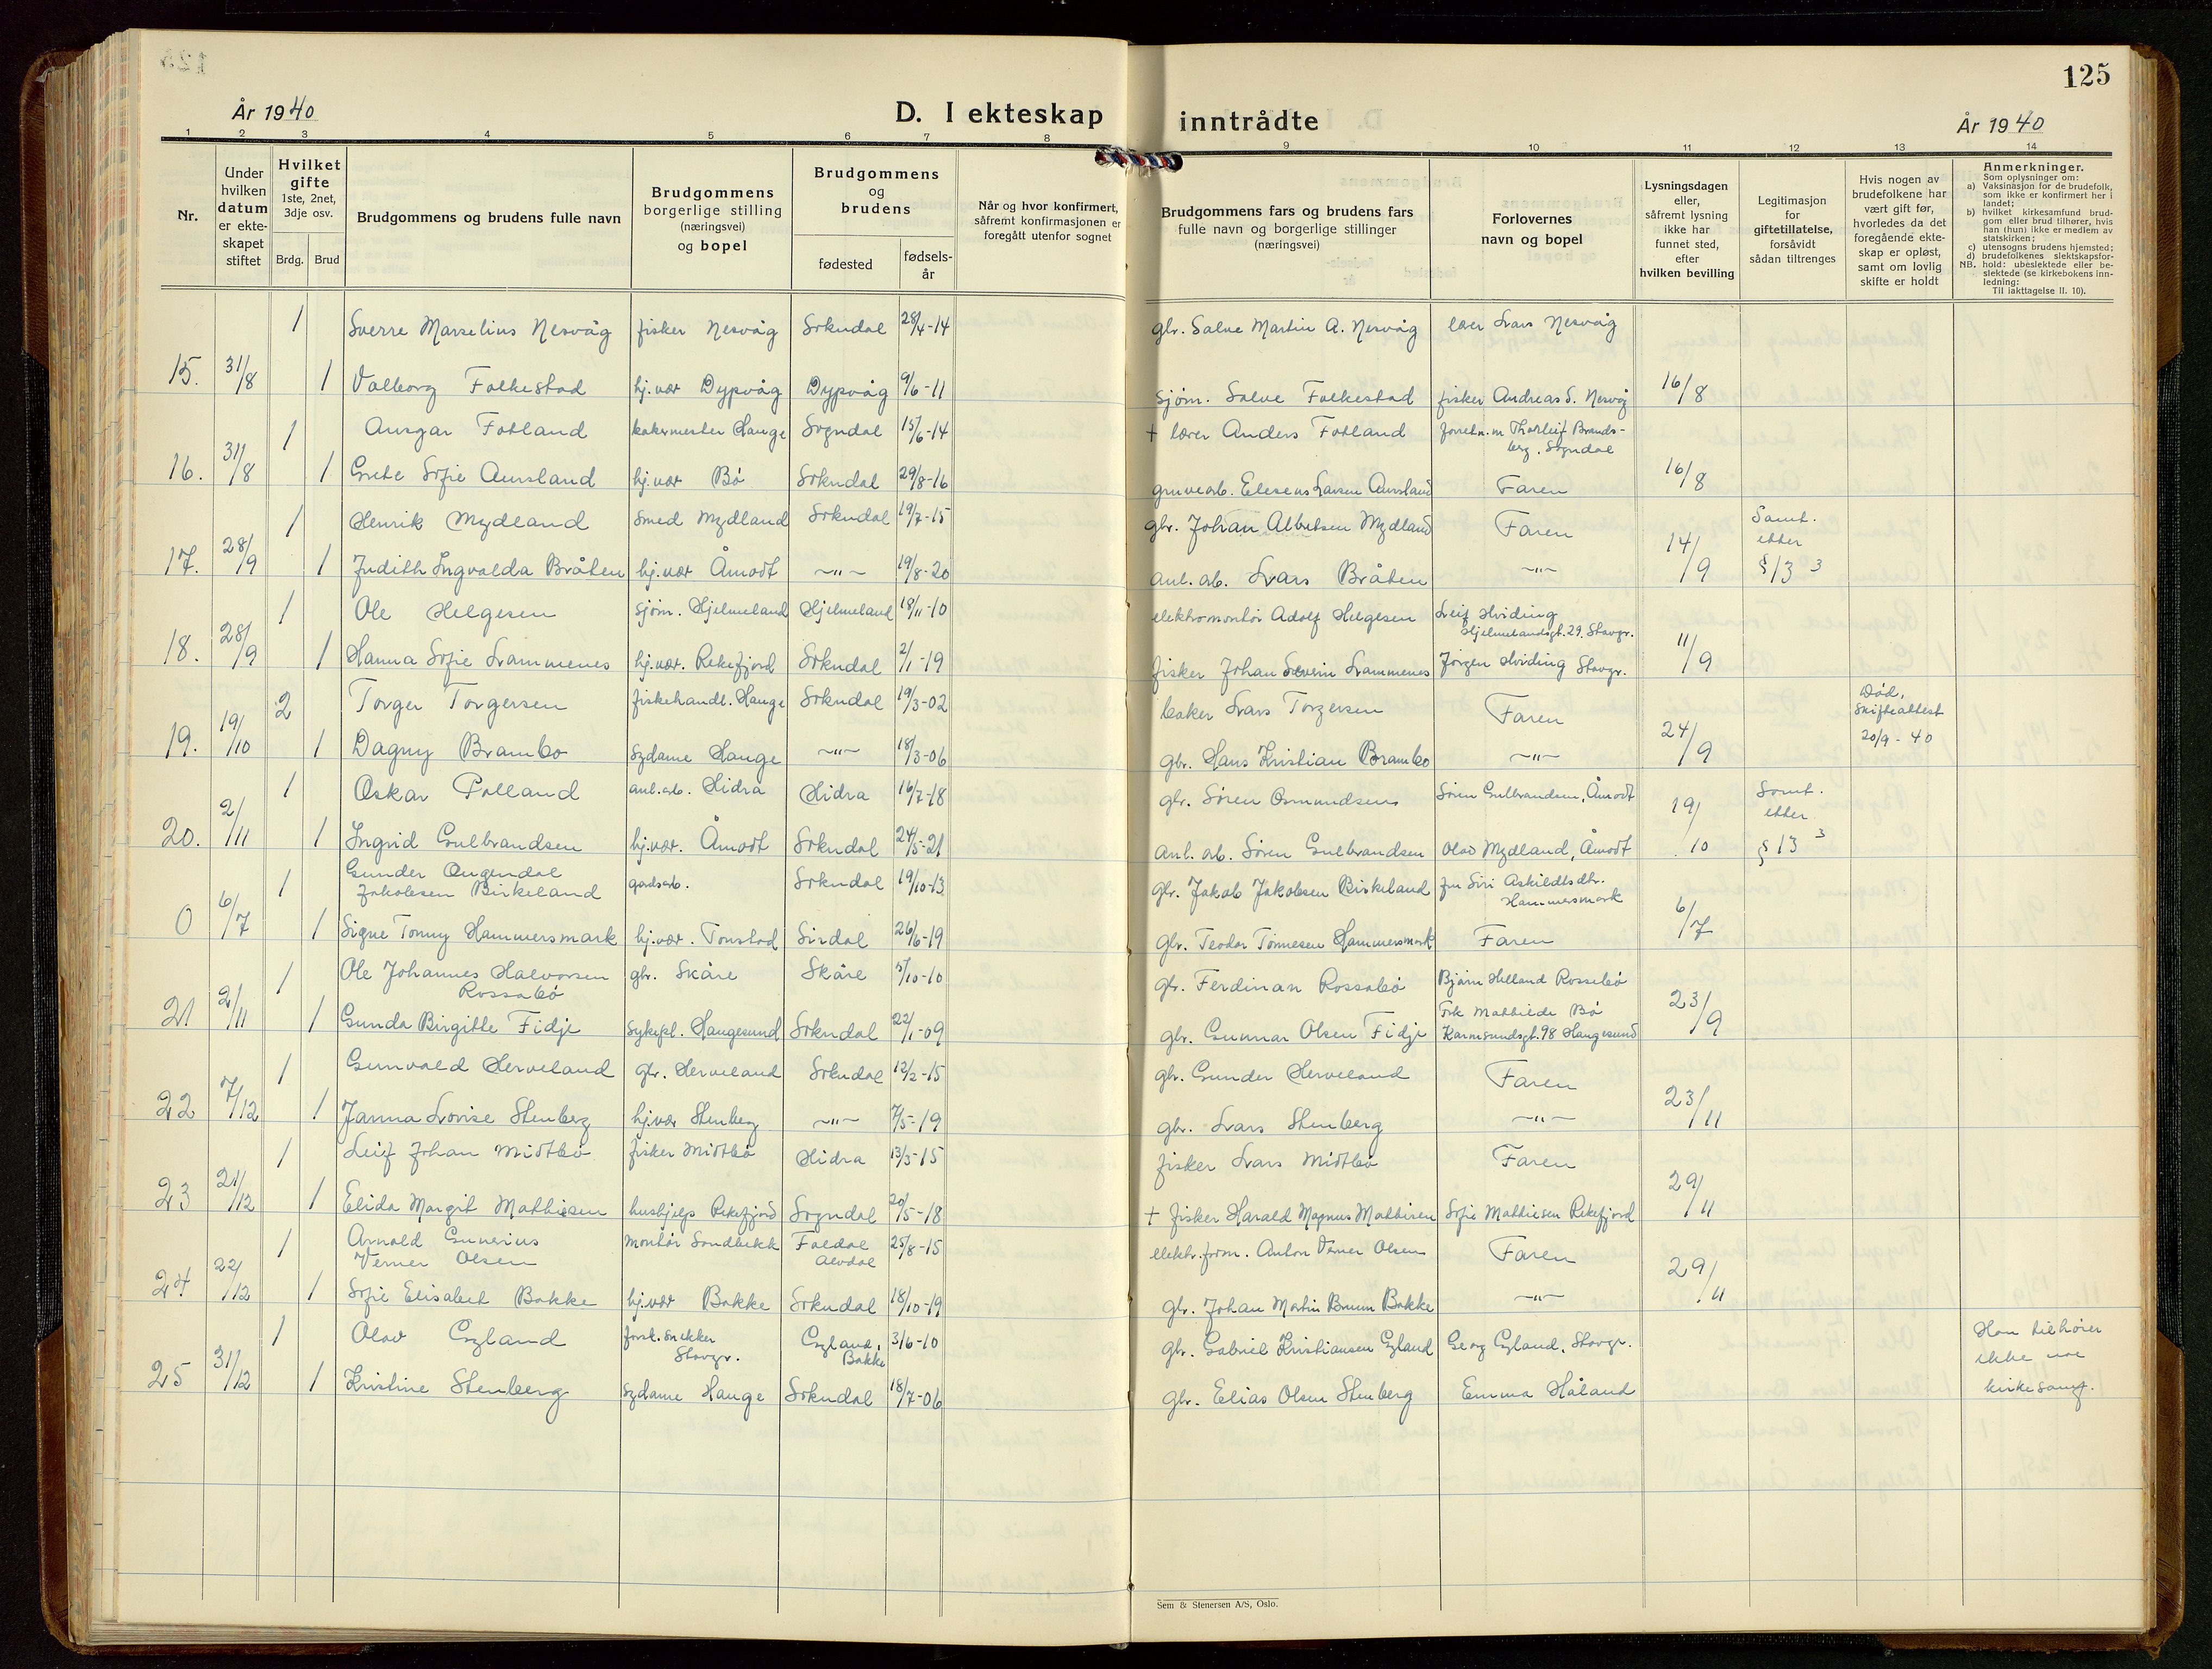 125
År 1940
D. I ekteskap inntrådte
År 1940
1 2 3 4 5 6 7 8 9 10 11 12 13 14
Nr.
Under hvilken datum er ekteskapet stiftet
Hvilket gifte 1ste, 2net, 3dje osv.
Brdg. Brud
Brudgommens og brudens fulle navn
Brudgommens borgerlige stilling (næringsvei) og bopel
Brudgommens og brudens
fødested
fødselsår
Når og hvor konfirmert, såfremt konfirmasjonen er foregått utenfor sognet
Brudgommens fars og brudens fars fulle navn og borgerlige stillinger (næringsvei)
Forlovernes navn og bopel
Lysningsdagen eller, såfremt lysning ikke har funnet sted, efter hvilken bevilling
Legitimasjon for giftetillatelse, forsåvidt sådan tiltrenges
Hvis nogen av brudefolkene har vært gift før, hvorledes da det foregående ekteskap er opløst, samt om lovlig skifte er holdt
Anmerkninger.
Som oplysninger om:
a) Vaksinasjon for de brudefolk, som ikke er konfirmert her i landet;
b) hvilket kirkesamfund brudgom eller brud tilhører, hvis han (hun) ikke er medlem av statskirken;
c) utensogns brudens hjemsted;
d) brudefolkenes slektskapsforhold: ubeslektede eller beslektede (se kirkebokens innledning:
NB. Til iakttagelse II. 10).
1 Sverre Marselius Nesvåg fisker Nesvåg Sokndal 28/4-14 gbr. Salve Martin A. Nesvåg Lars Nesvåg
15. 31/8 1 Valborg Folkestad hj.vær Dypvåg Dypvåg 9/6-11 sjøm. Salve Folkestad fisker Andreas S. Nesvåg 16/8
1 Ansgar Fotland bakermester Hauge Sogndal 15/6-14 + lærer Anders Fotland forretn.m Thorleif Brandsberg, Sogndal
16. 31/8 1 Grete Sofie Aursland hj.vær Bø Sokndal 29/8-16 gruvearb. Eliseus Larsen Aursland Faren 16/8
1 Henrik Mydland smed Mydland Sokndal 19/7-15 gbr. Johan Albetsen Mydland Faren Samt. etter
17. 28/9 1 Judith Ingvalda Bråten hj.vær Åmodt —"— 19/8-20 anl.arb. Lars Bråten —"— 14/9 §13 3
1 Ole Helgesen sjøm. Hjelmeland Hjelmeland 18/11-10 elektromontør Adolf Helgesen Leif Hviding Hjelmelandsgt. 29. Stavgr.
18. 28/9 1 Hanna Sofie Lammenes hj.vær. Rekefjord Sokndal 2/1-19 fisker Johan Severin Lammenes Jörgen Hviding Stavgr. 11/9
2 Torger Torgersen fiskehandl. Hauge Sokndal 19/3-02 baker Lars Torgersen Faren Død, skifteattest 20/9-40
19. 19/10 1 Dagny Brambo sydame Hauge —"— 18/3-06 gbr. Hans Kristian Brambo —"— 24/9
1 Oskar Polland anl.arb. Hidra Hidra 16/7-18 gbr. Sören Osmundsens Sören Gulbrandsen, Åmodt Samt. etter
20. 2/11 1 Ingrid Gulbrandsen hj.vær. Åmodt Sokndal 24/5-21 anl. arb. Sören Gulbrandsen Olav Mydland, Åmodt 19/10 §13 3
1 Gunder Augendal Jakobsen Birkeland gårdsarb. Sokndal 19/10-13 gbr. Jakob Jakobsen Birkeland fru Siri Askildtsdtr. Hammersmark
0 6/7 1 Signe Tonny Hammersmark hj.vær. Tonstad Sirdal 26/6-19 gbr. Teodor Tønnesen Hammersmark Faren 6/7
1 Ole Johannes Halvorsen Rossabö gbr. Skåre Skåre 5/10-10 gbr. Ferdinan Rossabö Bjarn Helland Rossebö
21 2/11 1 Gunda Birgitte Fidje sykepl. Haugesund Sokndal 22/1-09 gbr. Gunnar Olsen Fidje Frk Mathilde Bö Karmsundsgt. 98 Haugesund 23/9
1 Gunvald Herveland gbr. Herveland Sokndal 12/2-15 gbr. Gunder Herveland Faren
22 7/12 1 Janna Lovise Stenberg hj.vær Stenberg —"— 7/5-19 gbr. Lars Stenberg —"— 23/11
1 Leif Johan Midtbö fisker Midtbö Hidra 13/5-15 fisker Lars Midtbö Faren
23 21/12 1 Elida Margit Mathiesen hushjelp Rekefjord Sogndal 20/5-18 + fisker Harald Magnus Mathisen Sofie Mathiesen Rekefjord 29/11
1 Arnold Gunerius Verner Olsen montör Sandbekk Foldal Alvdal 25/8-15 elektr.form. Anton Verner Olsen Faren
24 22/12 1 Sofie Elisabet Bakke hj.vær Bakke Sokndal 18/10-19 gbr. Johan Martin Bruun Bakke —"— 29/11
1 Olav Egland forsk. snekker Stavgr. Egland, Bakke 3/6-10 gbr. Gabriel Kristiansen Egland Georg Egland, Stavgr. Han tilhører ikke noe kirkesamf.
25 31/12 1 Kristine Stenberg sydame Hauge Sokndal 18/7-06 gbr. Elias Olsen Stenberg Emma Håland
Sem & Stenersen A/S, Oslo.